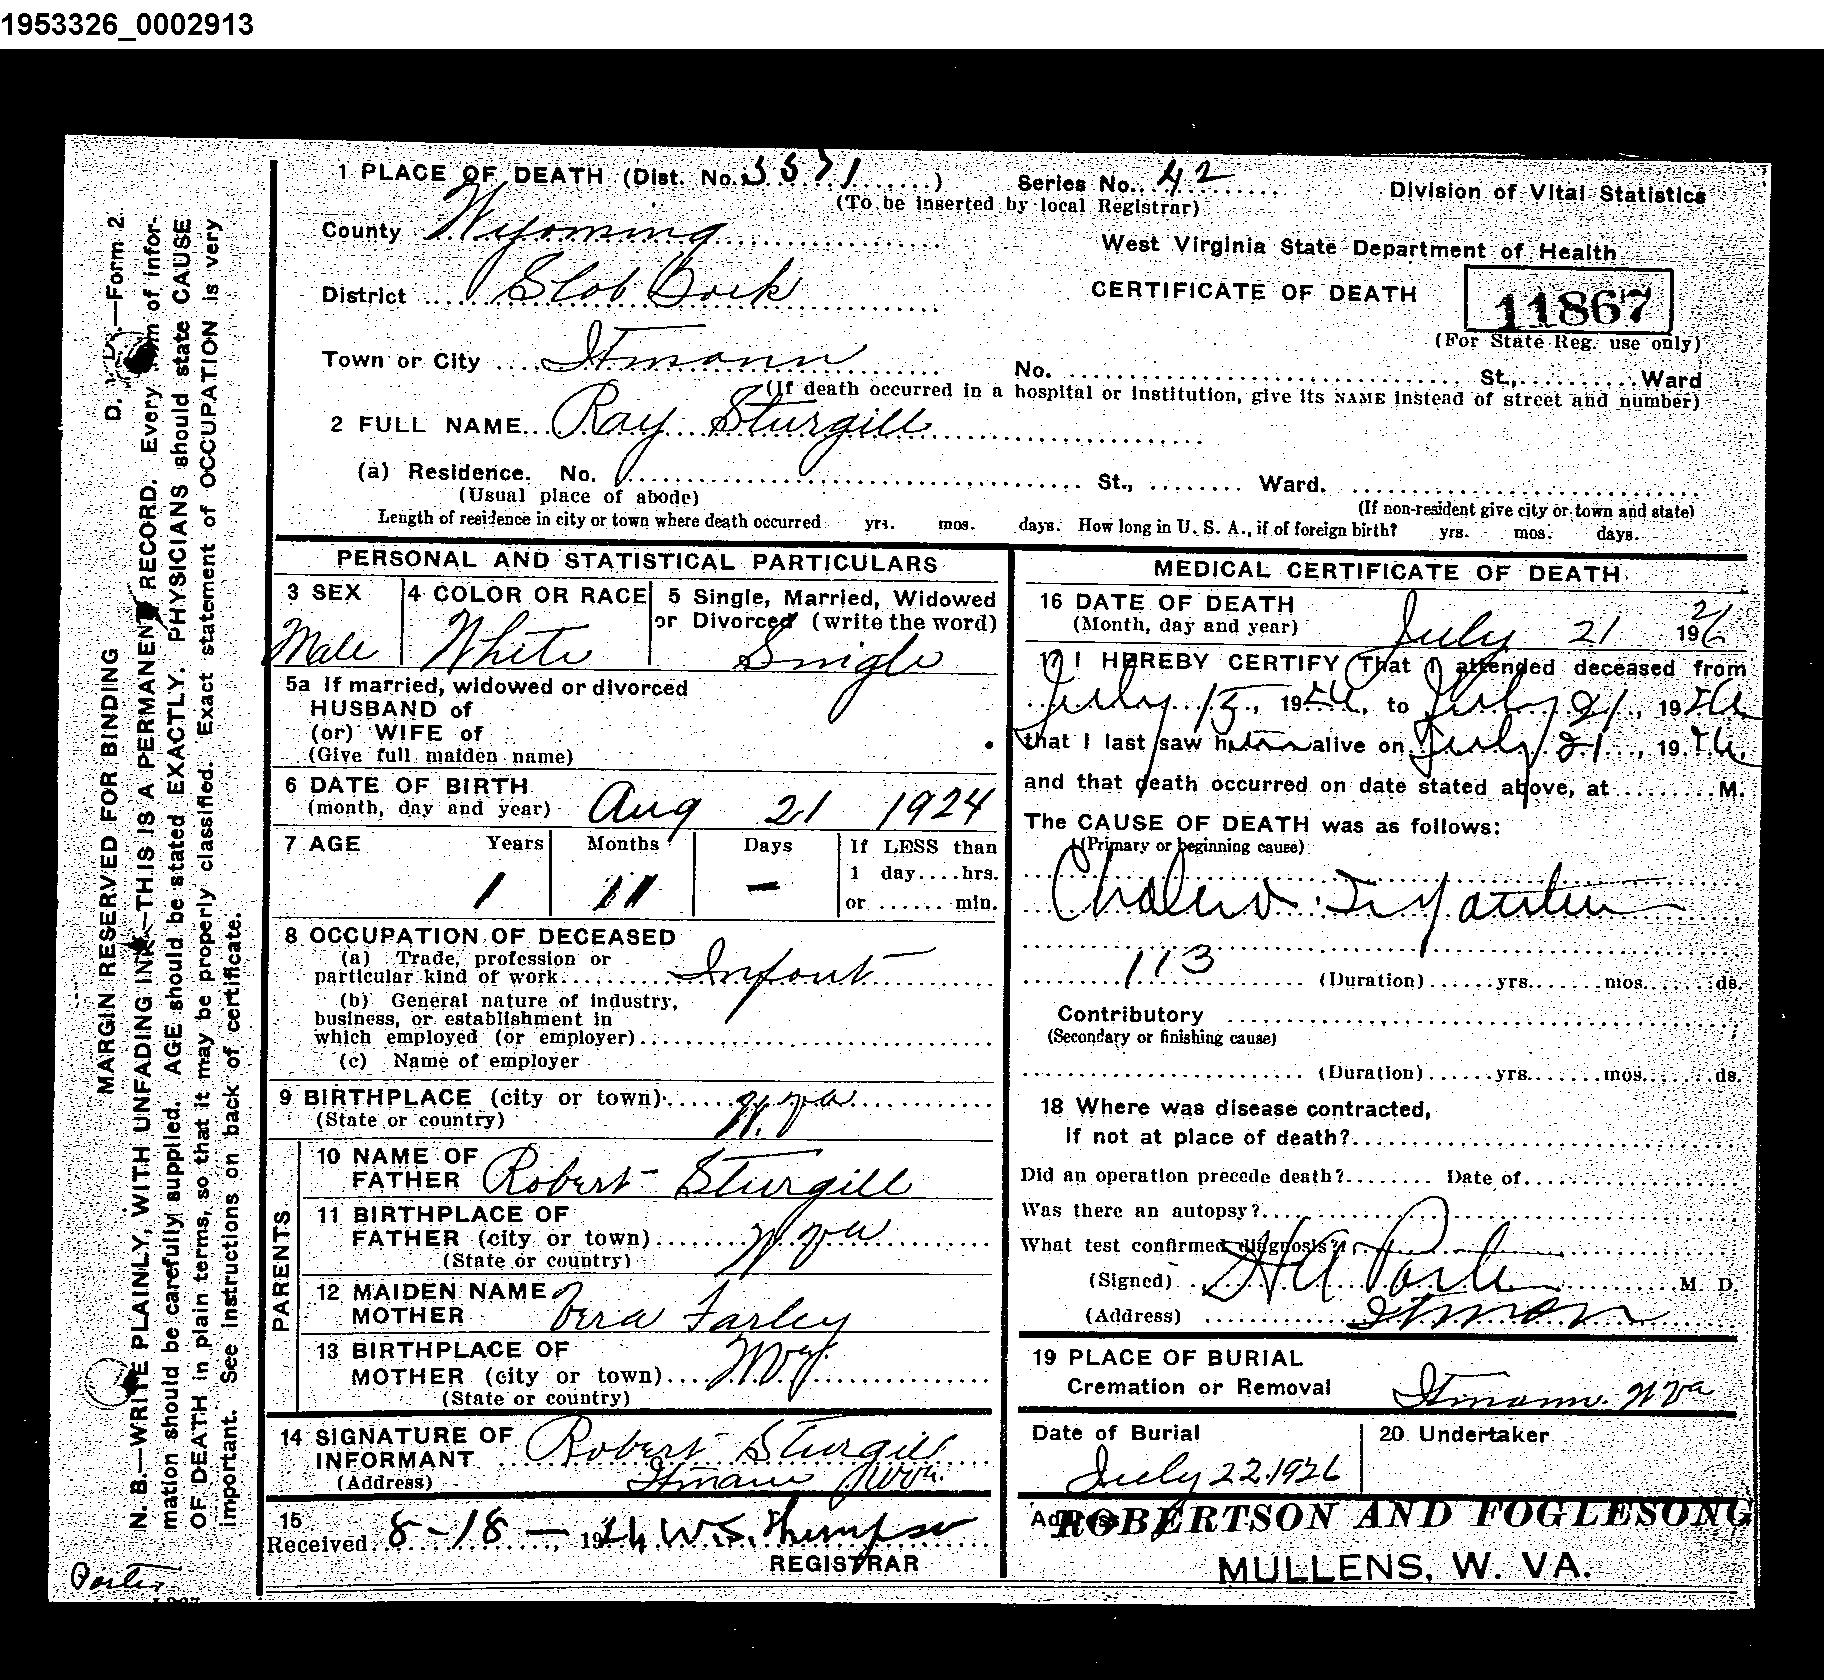 1953326_0002913
1 PLACE OF DEATH (Dist. No. 5571) Series No. 42
(To be inserted by local Registrar)
Division of Vital Statistics
County Wyoming
West Virginia State Department of Health
District Slab Fork
CERTIFICATE OF DEATH
11867
(For State Reg. use only)
Town or City Itmann
No. St., Ward
(If death occurred in a hospital or institution, give its NAME instead of street and number)
2 FULL NAME Ray Sturgill
(a) Residence. No. St., Ward.
(Usual place of abode)
(If non-resident give city or town and state)
Length of residence in city or town where death occurred yrs. mos. days. How long in U. S. A., if of foreign birth? yrs. mos. days.
PERSONAL AND STATISTICAL PARTICULARS
3 SEX
Male
4 COLOR OR RACE
White
5 Single, Married, Widowed
or Divorced (write the word)
Single
5a If married, widowed or divorced
HUSBAND of
(or) WIFE of
(Give full maiden name)
6 DATE OF BIRTH
(month, day and year) Aug 21 1924
7 AGE Years Months Days If LESS than
1 day....hrs.
1 11 — or ...... min.
8 OCCUPATION OF DECEASED
(a) Trade, profession or
particular kind of work Infant
(b) General nature of industry,
business, or establishment in
which employed (or employer)
(c) Name of employer
9 BIRTHPLACE (city or town) W. Va
(State or country)
PARENTS
10 NAME OF
FATHER Robert Sturgill
11 BIRTHPLACE OF
FATHER (city or town) W Va
(State or country)
12 MAIDEN NAME
MOTHER Vera Farley
13 BIRTHPLACE OF
MOTHER (city or town) W Va
(State or country)
14 SIGNATURE OF
INFORMANT Robert Sturgill
(Address) Itmann W Va.
15
Received 8-18-1926 W. S. Thompson
REGISTRAR
MEDICAL CERTIFICATE OF DEATH
16 DATE OF DEATH
(Month, day and year) July 21 1926
17 I HEREBY CERTIFY That I attended deceased from
July 15, 1926, to July 21, 1926
that I last saw him alive on July 21, 1926.
and that death occurred on date stated above, at M.
The CAUSE OF DEATH was as follows:
(Primary or beginning cause)
Cholera Infantum
113 (Duration) yrs. mos. ds.
Contributory
(Secondary or finishing cause)
(Duration) yrs. mos. ds.
18 Where was disease contracted,
if not at place of death?
Did an operation precede death? Date of
Was there an autopsy?
What test confirmed diagnosis?
(Signed) M. D.
(Address) Itmann
19 PLACE OF BURIAL
Cremation or Removal Itmann W Va
Date of Burial
July 22 1926
20 Undertaker
Address
ROBERTSON AND FOGLESONG
MULLENS, W. VA.
D. —Form 2.
MARGIN RESERVED FOR BINDING
N. B.—WRITE PLAINLY, WITH UNFADING INK—THIS IS A PERMANENT RECORD. Every item of infor-
mation should be carefully supplied. AGE should be stated EXACTLY. PHYSICIANS should state CAUSE
OF DEATH in plain terms, so that it may be properly classified. Exact statement of OCCUPATION is very
important. See instructions on back of certificate.
Porter